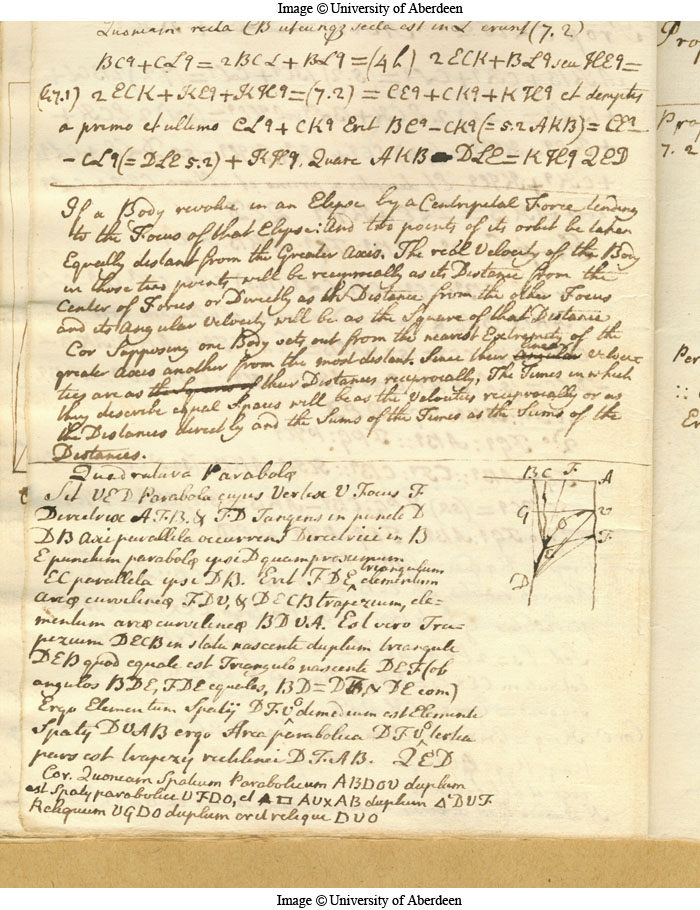 Image © University of Aberdeen
Quoniam recta CB utcunq; secta est in L erunt (7.2)
BCq + CLq = 2BCL + BLq = (4h) 2ECK + BLq seu HEq =
(47.1) 2ECK + KEq + KHq = (7.2) = CEq + CKq + KHq et demptis
a primo et ultimo CLq + CKq Erit BCq - CKq (= 5.2 AKB) = CEq
- CLq (= DLE 5.2) + KHq. Quare AKB - DLE = KHq QED
If a Body revolve in an Elipse by a Centripetal Force tending
to the Focus of that Elipse: And two points of its orbit be taken
Equally distant from the Greater axis. The real Velocity of the Body
in those two points will be reciprocally as its Distance from the
Center of Forces or Directly as the Distance from the other Focus
and its angular velocity will be as the Square of that Distance
Cor Supposing one Body sets out from the nearest Extremity of the
greater axis another from the most distant. Since their linear angular Veloci-
ties are as the Square of their Distances reciprocally, The Times in which
they describe equal Spaces will be as the Velocities reciprocally or as
the Distances directly and the Sums of the Times as the Sums of the
Distances.
Quadratura Parabolæ
Sit VED Parabola cujus Vertex V Focus F
Directrix A.F.B. & TD Tangens in puncto D
DB axi parallela occurrens Directrici in B
E punctum parabolæ ipsi D quam proximum
EC parallela ipsi DB. Erit FDE triangulum elementum
areæ curvelineæ FDV, & DECB trapezium, ele-
mentum areæ curvelineæ BDVA. Est vero Tra-
pezium DECB in statu nascente duplum trianguli
DEB quod equale est Triangulo nascente DEF (ob
angulos BDE, FDE equales, BD = DF, & DE com)
Ergo Elementum Spatij DFV dimedium est Elementi
Spatij DVAB ergo Area parabolica DFV tertia
pars est trapezij rectilinei DFAB. QED
Cor. Quoniam Spatium Parabolicum ABDOV duplum
est Spatij parabolici VFDO, et □ AVxAB duplum Δ DVF
Reliquum VGDO duplum erit reliqui DVO
B C F A
G V
O
E F
D
Pro
Pro
7. 2
Per
::
Er
Image © University of Aberdeen